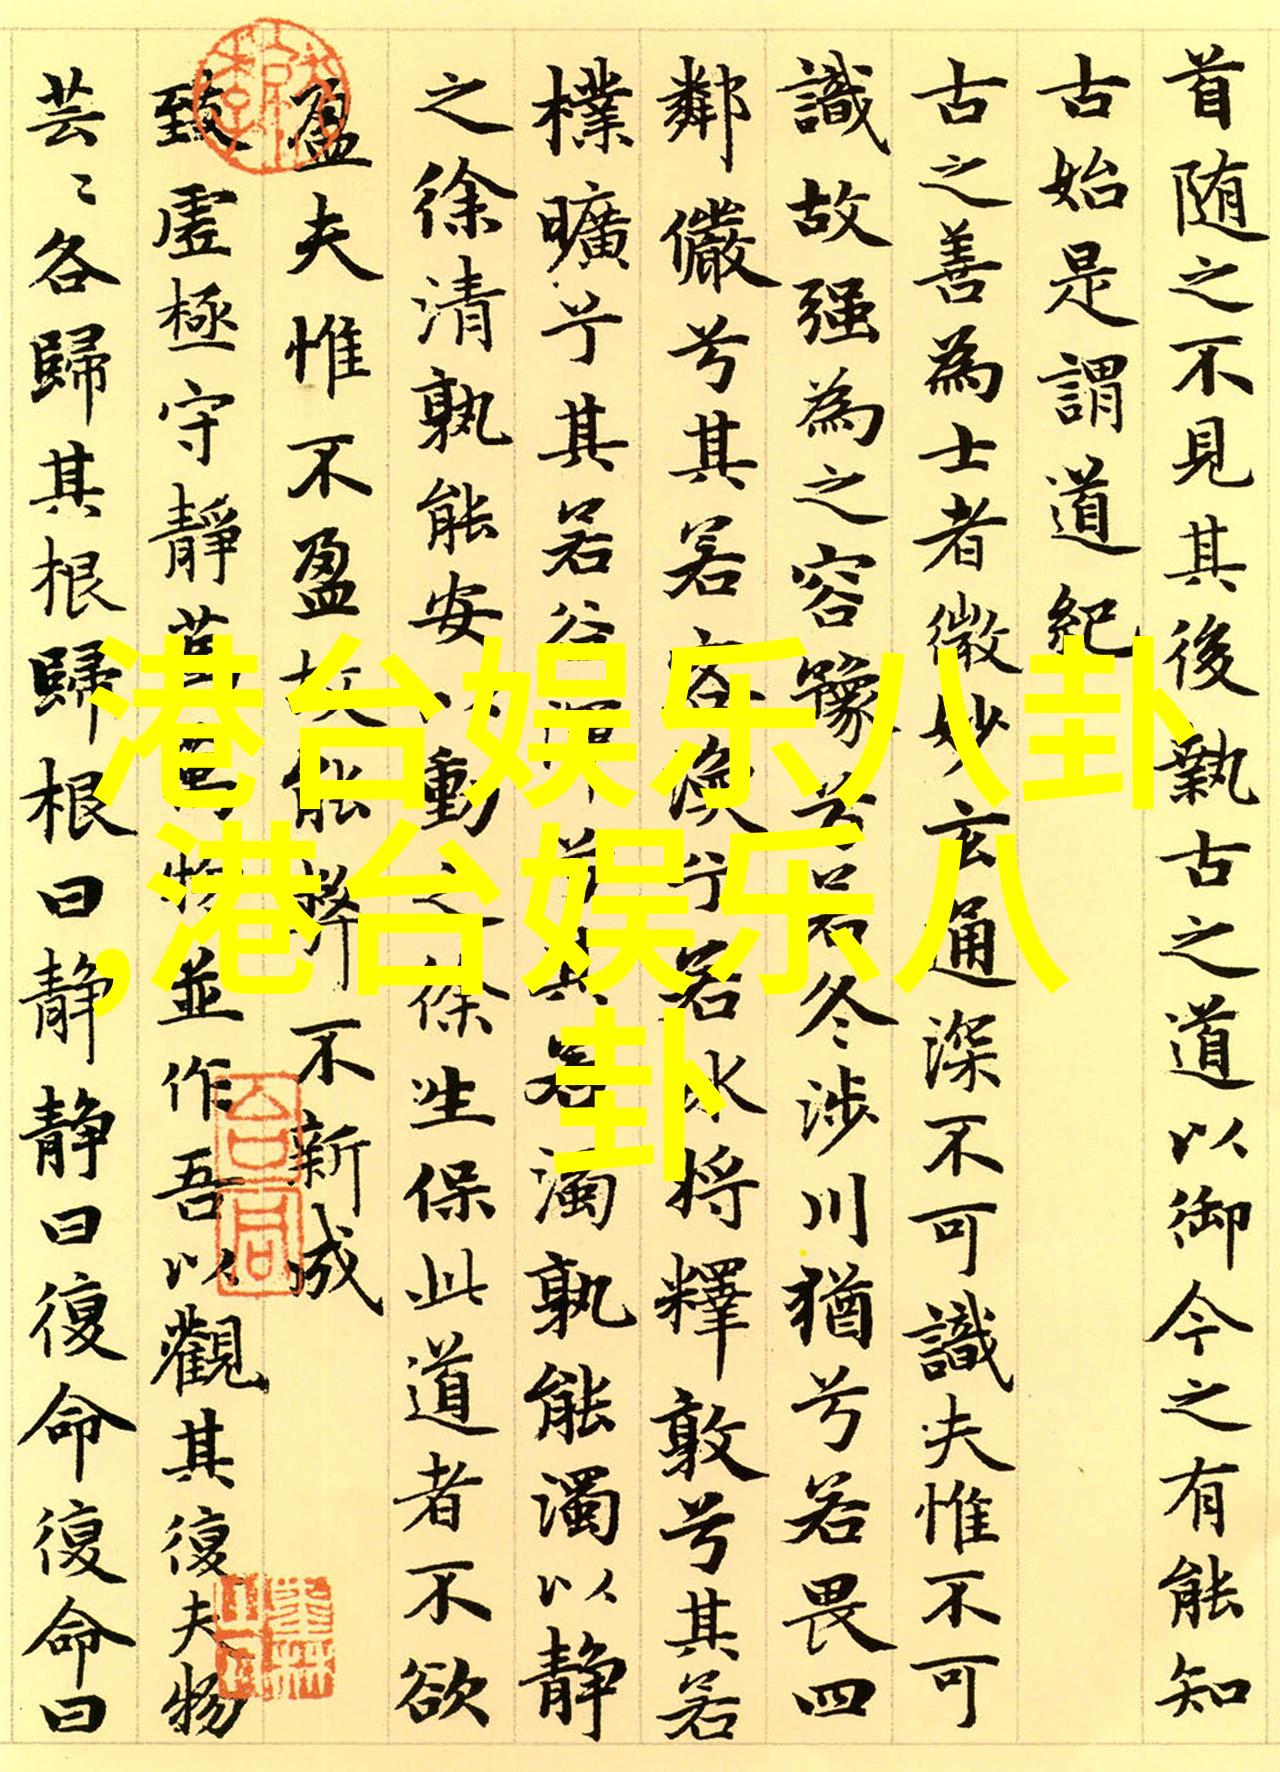 首随之不見其後執古之道以御今之有能知
古始是謂道紀
古之善為士者微妙玄通深不可識夫惟不可
識故强為之容豫兮若冬涉川猶兮若畏四
鄰儼兮其若客渙兮若冰將釋敦兮其若
樸曠兮其若谷渾兮其若濁孰能濁以静
之徐清孰能安以動之徐生保此道者不欲
盈夫惟不盈故能弊不新成
致虛極守靜篤萬物並作吾以觀其復夫物
芸〻各歸其根歸根曰静静曰復命復命曰
港台娱乐八卦
,港台娱乐八
卦